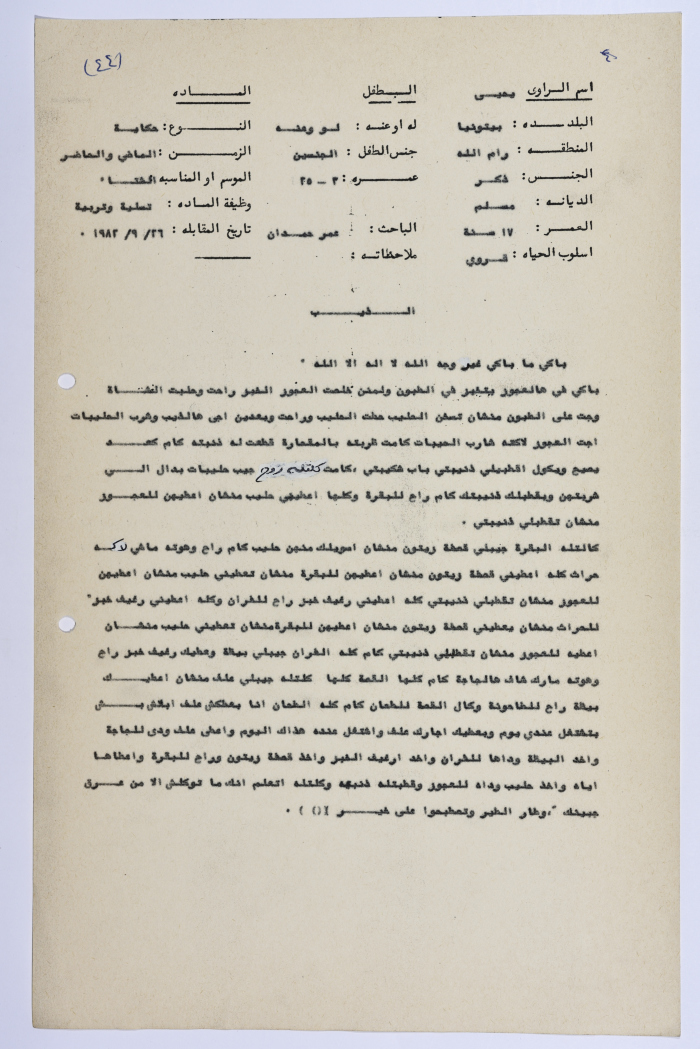 (٤٤)
اسم الراوي يحيى الطفل المادة
البلده : بيتونيا له او عنه : له وعنه النوع : حكاية
المنطقه : رام الله جنس الطفل : الجنسين الزمن : الماضي والحاضر
الجنس : ذكر عمره : ٣ - ٢٥ الموسم او المناسبه الشتا"
الديانه : مسلم وظيفة الماده : تسلية وتربية
العمر : ١٧ سنة الباحث : عمر حمدان تاريخ المقابله : ٢٦/ ٩/ ١٩٨٢ ٠
اسلوب الحياه : قروي ملاحظاته :
الذيب
باكي ما باكي غير وجه الله لا اله الا الله "
باكي في هالعجوز بتخبز في الطبون ولمن خلصت العجوز الخبز راحت وحلبت الغنمـاة
وجت على الطبون منشان تسخن الحليب حطت الحليب وراحت وبعدين اجى هالذيب وشرب الحليبات
اجت العجوز لاكته شارب الحليبات كامت ظربته بالمقحارة قطعت له ذنبته كام كعـد
يصيح ويكول اقطبيلي ذنيبتي باب شكيبتي ،كامت كلتله روح جيب حليبات بدال الـي
شربتهن وبقطبلك ذنيبتك كام راح للبقرة وكلها اعطيني حليب منشان اعطيهن للعجـوز
منشان تقطبلي ذنيبتي ٠
كالتله البقرة جيبلي قحطة زيتون منشان اسويلك منهن حليب كام راح وهوته ماشي لاكـه
حراث كله اعطيني قحطة زيتون منشان اعطيهن للبقرة منشان تعطيني حليب منشان اعطيهن
للعجوز منشان تقطبلي ذنيبتي كله اعطيني رغيف خبز راح للفران وكله اعطيني رغيف خبز"
للحراث منشان يعطيني قحطة زيتون منشان اعطيهن للبقرة منشان تعطيني حليب منشـان
اعطيه للعجوز منشان تقطبلي ذنيبتي كام كله الفران جيبلي بيظة وبعطيك رغيف خبز راح
وهوته مارك شاف هالجاجة كام كلها القصة كلها كلتله جيبلي علف منشان اعطيـك
بيظة راح للطاحونة وكال القصة للطحان كام كله الطحان انا بعطكش علف ابلاش بـش
بتشتغل عندي يوم وبعطيك اجارك علف واشتغل عنده هذاك اليوم واعطى علف وودى للجاجة
واخذ البيظة وداها للفران واخذ ارغيف الخبز واخذ قحطة زيتون وراح للبقرة واعطاها
اياه واخذ حليب وداه للعجوز وقطبتله ذنبته وكلتله اتعلم انك ما توكلش الا من عـرق
جبينك "،وطار الطير وتصبحوا على خيـر )() ( ٠